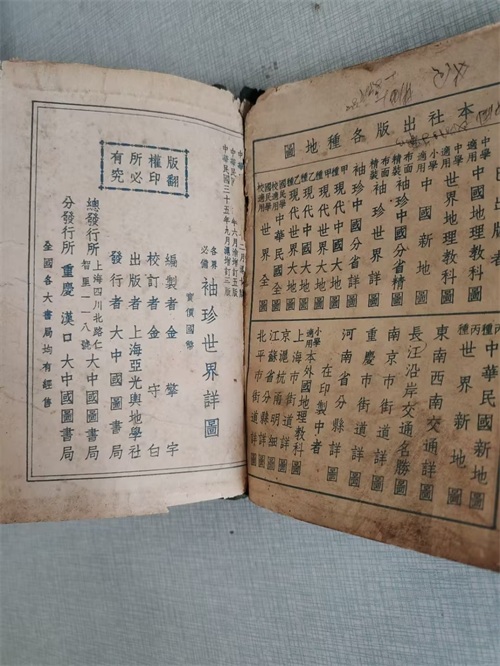 本社出版各種地圖
已出版者
中學適用 中國地理教科
中學適用 世界地理教科圖
小學適用 中國新地圖
布面精裝 袖珍中國分省精圖
布面精裝 袖珍世界詳圖
袖珍中國分省詳圖
甲種 現代中國大地圖
甲種 現代世界大地圖
乙種 現代中國大地圖
乙種 現代世界大地圖
國民學校適用 中華民國全圖
國民學校適用 世界全圖
丙種 中華民國新地圖
丙種 世界新地圖
東南西南交通詳圖
長江沿岸交通名勝圖
南京市街道詳圖
重慶市街道詳圖
河南省分縣詳圖
在印製中者
小學適用 本外國地理教科圖
上海市街道詳圖
京滬杭甬明細圖
江蘇省分縣詳圖
北平市街道詳圖
年六月滬增訂五版
中華民國三十五年九月滬增訂三版
各界必備 袖珍世界詳圖
實價國幣
編製者 金擎宇
校訂者 金守白
出版者 上海亞光輿地學社
發行者 大中國圖書局
總發行所 大中國圖書局
上海四川北路仁智里一一八號
分發行所 重慶 漢口 大中國圖書局
全國各大書局均有經售
版權所有
翻印必究